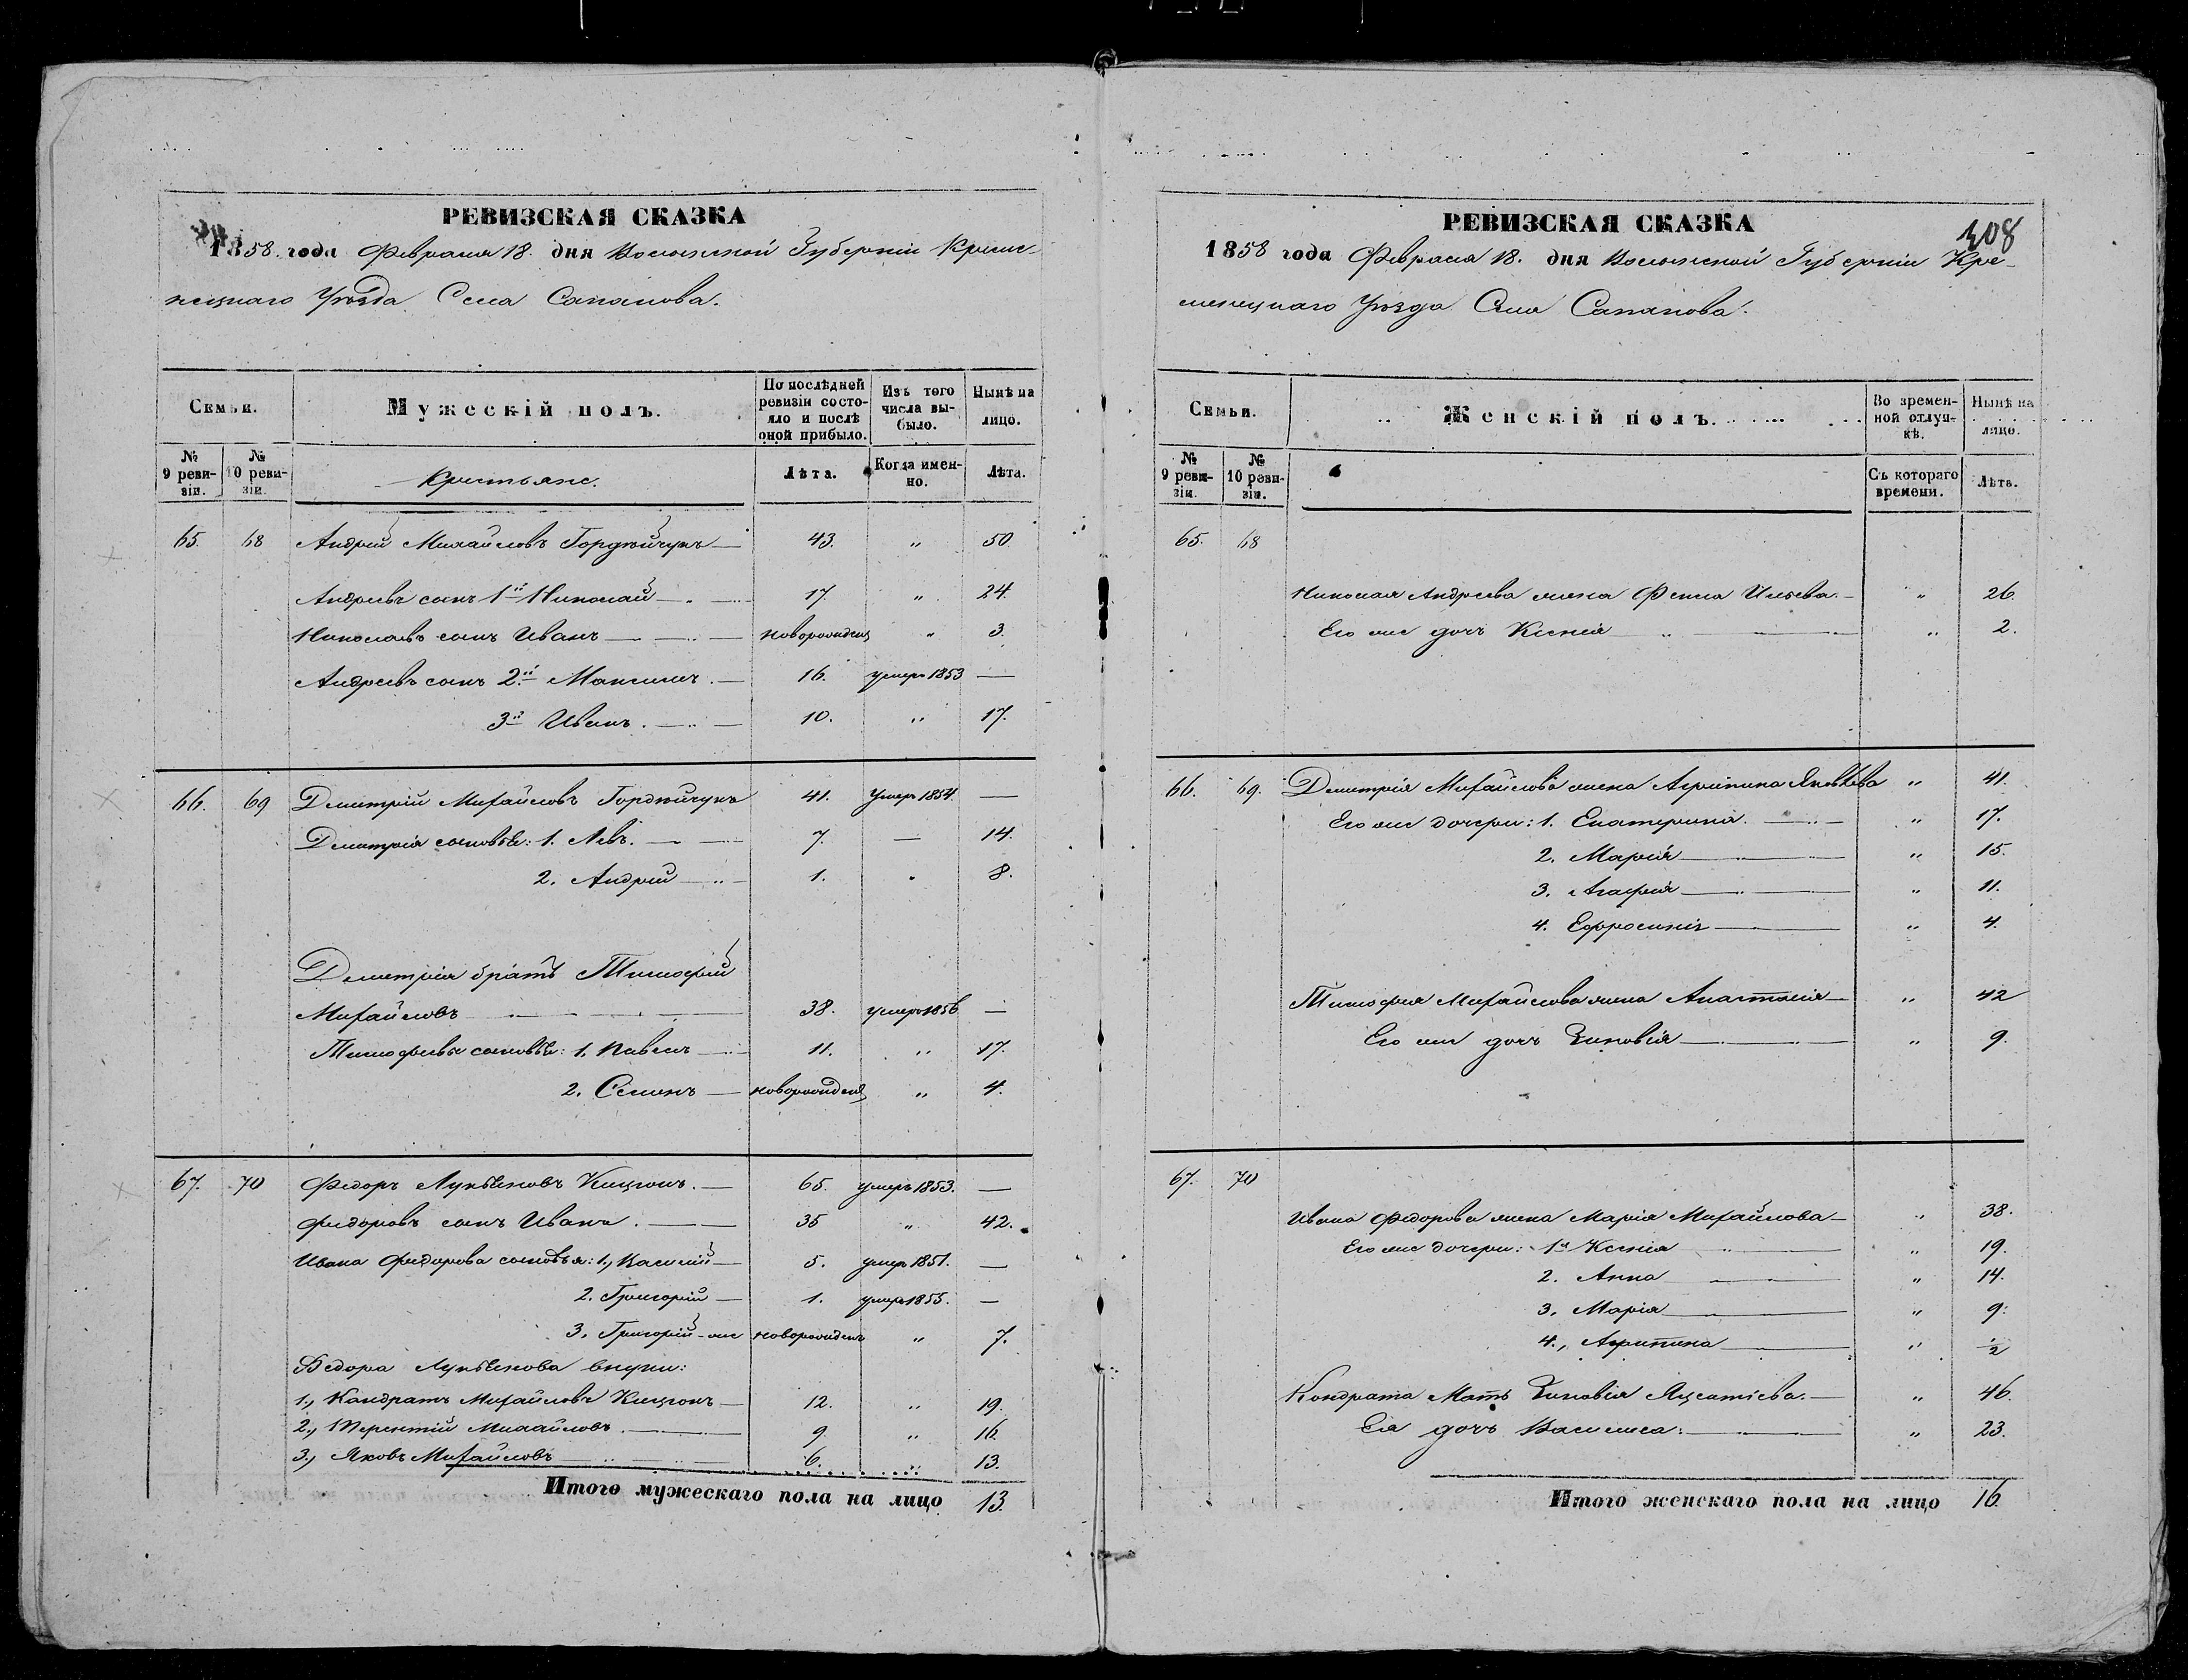 РЕВИЗСКАЯ СКАЗКА
1858 года Февраля 18. дня Волынской Губерніи Креме-
нецкаго Уѣзда Села Сапанова.
Семьи. Мужескій полъ. По послѣдней ревизіи состояло и послѣ оной прибыло. Изъ того числа выбыло. Нынѣ на лицо.
№ 9 ревизіи. № 10 ревизіи. Крестьяне. Лѣта. Когда именно. Лѣта.
65. 68 Андрей Михайловъ Гордѣйчукъ 43. „ 50
Андреевъ сынъ 1й Николай 17. „ 24.
Николаевъ сынъ Иванъ новорожден „ 3.
Андреевъ сынъ 2й Максимъ 16. умеръ 1853 —
3й Иванъ. 10. „ 17.
66. 69 Дмитрій Михайловъ Гордѣйчукъ 41. умеръ 1854. —
Дмитрія сыновья: 1. Левъ. 7. — 14.
2. Андрей 1. „ 8.
Дмитрія братъ Тимофей
Михайловъ 38. умеръ 1856 —
Тимофеевы сыновья: 1. Павелъ 11. „ 17.
2. Семенъ новорожден „ 4.
67. 70 Федоръ Лукьяновъ 65. умеръ 1853. —
Федоровъ сынъ Иванъ. 35 „ 42.
Ивана Федорова сыновья: 1., Василій 5. умеръ 1851. —
2. Григорій 1. умеръ 1855. —
3. Григорій-же новорожденъ „ 7.
Федора Лукьянова внуки:
1., Кондратъ Михайловъ 12. „ 19.
2., Терентій Михайловъ. 9. „ 16
3., Яковъ Михайловъ 6. „ 13.
Итого мужескаго пола на лицо 13.
308
РЕВИЗСКАЯ СКАЗКА
1858 года Февраля 18. дня Волынской Губерніи Кре-
менецкаго Уѣзда Села Сапанова.
Семьи. Женскій полъ. Во временной отлучкѣ. Нынѣ на лицо.
№ 9 ревизіи. № 10 ревизія. Съ котораго времени. Лѣта.
65. 68
Николая Андреева жена Фекла Ильева. „ 26.
Его же дочь Ксенія „ 2.
66. 69. Дмитрія Михайлова жена Агрипина Яковлева „ 41.
Его же дочери: 1. Екатерина. „ 17.
2. Марія „ 15.
3. Агафія „ 11.
4. Ефросинія „ 4.
Тимофея Михайлова жена Анастасія „ 42
Его же дочь Зиновія „ 9.
67. 70
Ивана Федорова жена Марія Михайлова „ 38.
Его же дочери: 1я Ксенія „ 19.
2. Анна „ 14.
3. Марія „ 9.
4., Агрипина „ ½
Кондрата Мать Зиновія „ 46.
Ея дочь Василиса. „ 23.
Итого женскаго пола на лицо 16.